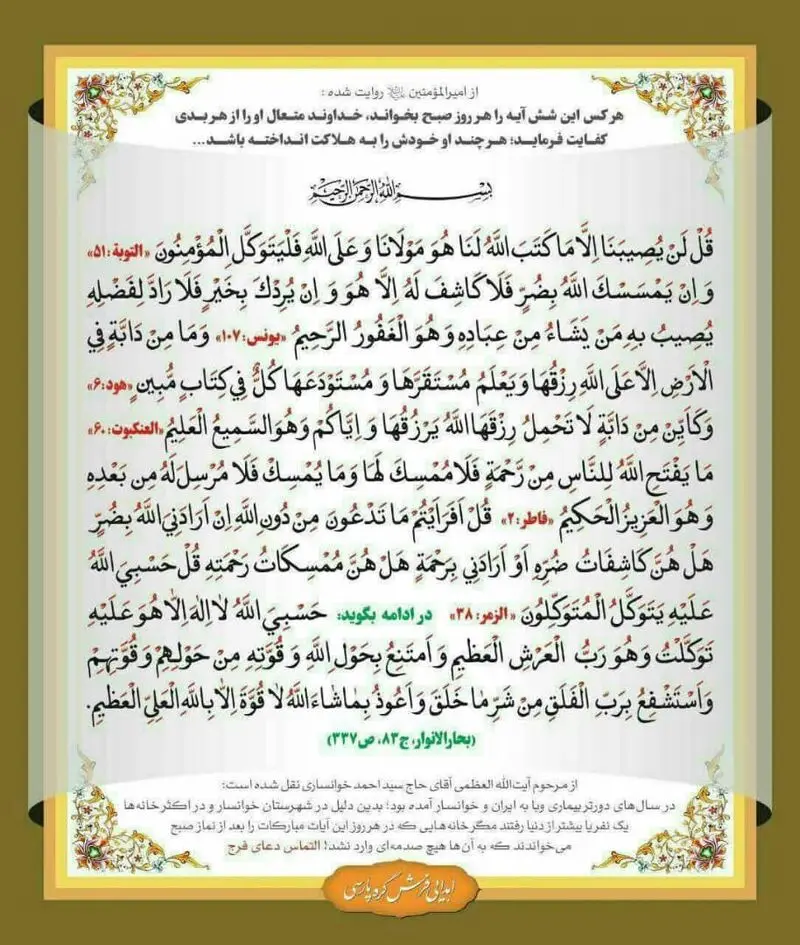 از امیرالمؤمنین علیه‌السلام روایت شده :
هر کس این شش آیه را هر روز صبح بخواند، خداوند متعال او را از هر بدی
کفایت فرماید؛ هر چند او خودش را به هلاکت انداخته باشد...
بِسْمِ اللهِ الرَّحْمنِ الرَّحِیمِ
قُلْ لَنْ يُصِيبَنَا اِلَّا مَا كَتَبَ اللهُ لَنَا هُوَ مَوْلَانَا وَ عَلَى اللهِ فَلْيَتَوَكَّلِ الْمُؤْمِنُونَ «التوبة: ۵۱»
وَ اِنْ يَمْسَسْكَ اللهُ بِضُرٍّ فَلَا كَاشِفَ لَهُ اِلَّا هُوَ وَ اِنْ يُرِدْكَ بِخَيْرٍ فَلَا رَادَّ لِفَضْلِهِ
يُصِيبُ بِهِ مَنْ يَشَاءُ مِنْ عِبَادِهِ وَ هُوَ الْغَفُورُ الرَّحِيمُ «یونس: ۱۰۷» وَ مَا مِنْ دَابَّةٍ فِي
الْاَرْضِ اِلَّا عَلَى اللهِ رِزْقُهَا وَ يَعْلَمُ مُسْتَقَرَّهَا وَ مُسْتَوْدَعَهَا كُلٌّ فِي كِتَابٍ مُبِينٍ «هود: ۶»
وَ كَاَيِّنْ مِنْ دَابَّةٍ لَا تَحْمِلُ رِزْقَهَا اللهُ يَرْزُقُهَا وَ اِيَّاكُمْ وَ هُوَ السَّمِيعُ الْعَلِيمُ «العنکبوت: ۶۰»
مَا يَفْتَحِ اللهُ لِلنَّاسِ مِنْ رَحْمَةٍ فَلَا مُمْسِكَ لَهَا وَ مَا يُمْسِكْ فَلَا مُرْسِلَ لَهُ مِنْ بَعْدِهِ
وَ هُوَ الْعَزِيزُ الْحَكِيمُ «فاطر: ۲» قُلْ اَفَرَاَيْتُمْ مَا تَدْعُونَ مِنْ دُونِ اللهِ اِنْ اَرَادَنِيَ اللهُ بِضُرٍّ
هَلْ هُنَّ كَاشِفَاتُ ضُرِّهِ اَوْ اَرَادَنِي بِرَحْمَةٍ هَلْ هُنَّ مُمْسِكَاتُ رَحْمَتِهِ قُلْ حَسْبِيَ اللهُ
عَلَيْهِ يَتَوَكَّلُ الْمُتَوَكِّلُونَ «الزمر: ۳۸» در ادامه بگوید: حَسْبِيَ اللهُ لَا اِلٰهَ اِلَّا هُوَ عَلَيْهِ
تَوَكَّلْتُ وَ هُوَ رَبُّ الْعَرْشِ الْعَظِيمِ وَ اَمْتَنِعُ بِحَوْلِ اللهِ وَ قُوَّتِهِ مِنْ حَوْلِهِمْ وَ قُوَّتِهِمْ
وَ اَسْتَشْفِعُ بِرَبِّ الْفَلَقِ مِنْ شَرِّ مَا خَلَقَ وَ اَعُوذُ بِمَا شَاءَ اللهُ لَا قُوَّةَ اِلَّا بِاللهِ الْعَلِيِّ الْعَظِيمِ.
(بحارالانوار، ج۸۳، ص۳۳۷)
از مرحوم آیت‌الله العظمی آقای حاج سید احمد خوانساری نقل شده است:
در سال‌های دورتر بیماری وبا به ایران و خوانسار آمده بود؛ بدین دلیل در شهرستان خوانسار و در اکثر خانه‌ها
یک نفر یا بیشتر از دنیا رفتند مگر خانه‌هایی که در هر روز این آیات مبارکات را بعد از نماز صبح
می‌خواندند که به آن‌ها هیچ صدمه‌ای وارد نشد! التماس دعای فرج
اهدایی فرش کره پارسی